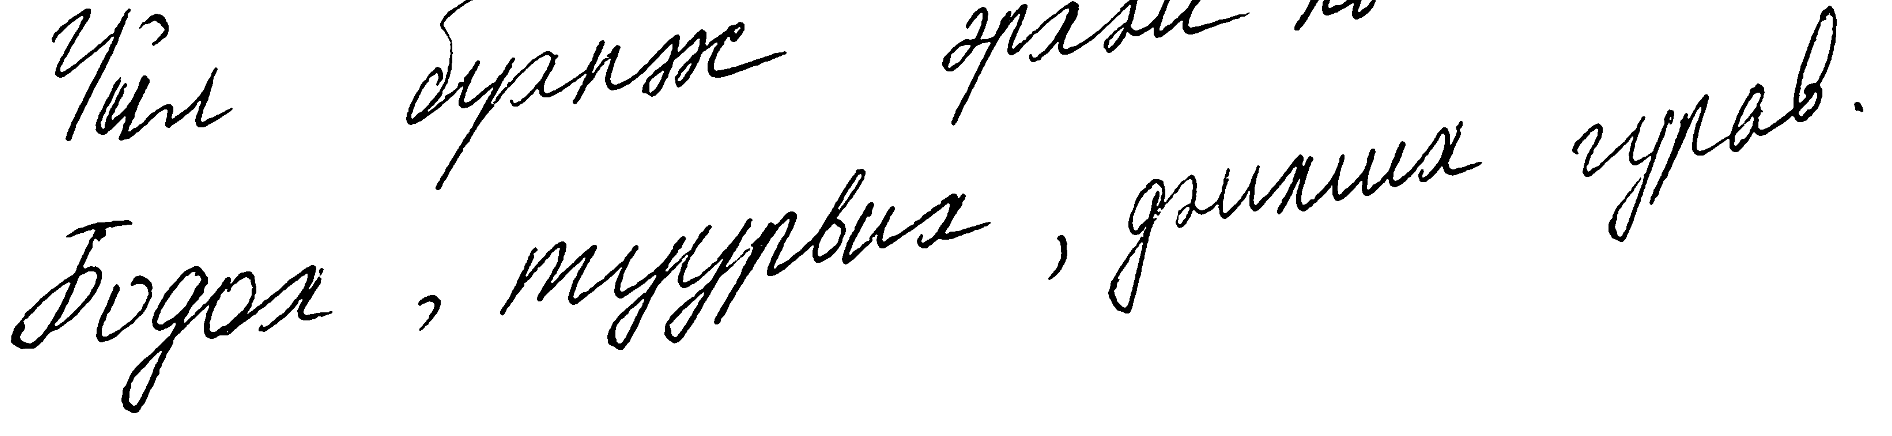 Үйл бүхнээс эрхэм
Бодох, туурвих, дэмжих гурав.